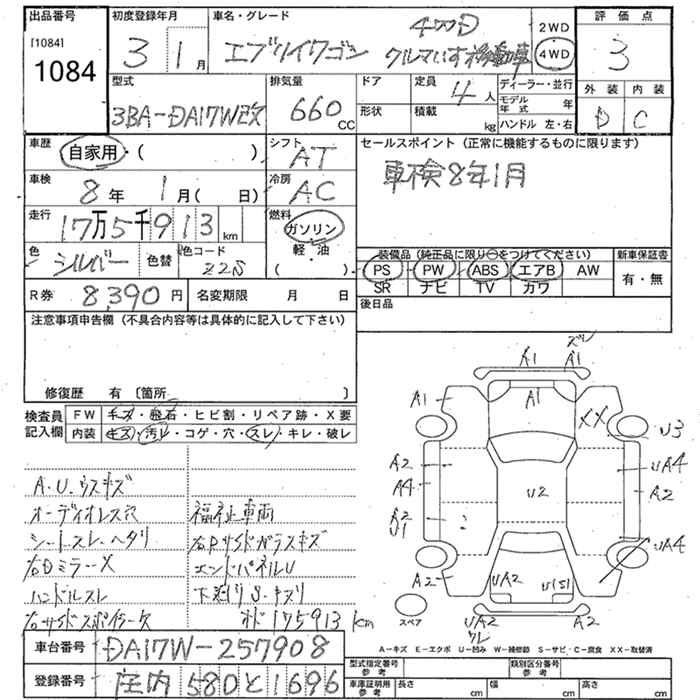 出品番号
[1084]
1084
初度登録年月
3 1月
車名・グレード
4WD
エブリイワゴン クルマいす移動車
2WD
4WD
評価点
3
外装 内装
D C
型式
3BA-DA17W改
排気量
660 CC
ドア
定員
4人
形状
積載
kg
ディーラー・並行
モデル年式 年
ハンドル 左・右
車歴
自家用・( )
シフト
AT
車検
8年 1月( 日)
冷房
AC
走行
17万5千913 km
燃料
ガソリン
軽・油
( )
色
シルバー
色替
色コード
Z2S
R券 8,390円
名変期限 月 日
セールスポイント(正常に機能するものに限ります)
車検8年1月
装備品(純正品に限り○をつけてください)
PS PW ABS エアB AW
SR ナビ TV カワ
新車保証書
有・無
後日品
注意事項申告欄(不具合内容等は具体的に記入して下さい)
修復歴 有〔箇所 〕
検査員記入欄
FW キズ・飛石・ヒビ割・リペア跡・X要
内装 キズ・汚レ・コゲ・穴・スレ・キレ・破レ
A.U.ウスキズ
オーディオレス穴
シートスレ・ヘタリ
右Dミラー X
ハンドルスレ
右サイドスポイラーX
福祉車両
右Rサイドガラスキズ
エンドパネルU
下廻りS・キズリ
オド175913km
ズレ
A1 A1
A1
A1
XX
U3
A2
A4
UA4
A2
U2
A2
U1
UA4
A2
UA2
U(S)
UA2
クレ
A2
スペア
A-キズ E-エクボ U-凹み W-補修跡 S-サビ・C-腐食 XX-取替済
車台番号 DA17W-257908
登録番号 庄内 580 と 1696
型式指定番号
参考
類別区分番号
参考
車庫証明用
参考
長さ cm
幅 cm
高さ cm